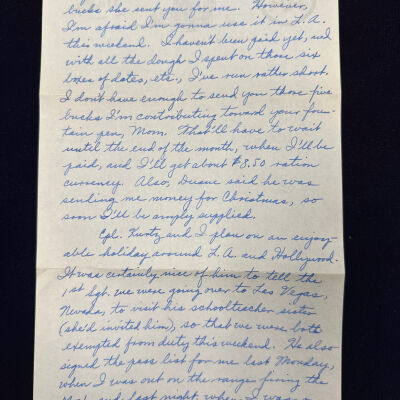 bucks she sent you for me. However,
I'm afraid I'm gonna use it in L.A.
this weekend. I haven't been paid yet, and
with all the dough I spent on those six
boxes of dates, etc., I've run rather short.
I don't have enough to send you those five
bucks I'm contributing toward your foun-
tain pen, Mom. That'll have to wait
until the end of the month, when I'll be
paid, and I'll get about $8.50 ration
currency. Also, Duane said he was
sending me money for Christmas, so
soon I'll be amply supplied.
Cpl. Kurtz and I plan on an enjoy-
able holiday around L.A. and Hollywood.
It was certainly nice of him to tell the
1st Sgt. we were going over to Las Vegas,
Nevada, to visit his schoolteacher sister
(she'd invited him), so that we were both
exempted from duty this weekend. He also
signed the pass list for me last Monday,
when I was out on the range firing the
and last night, when I was